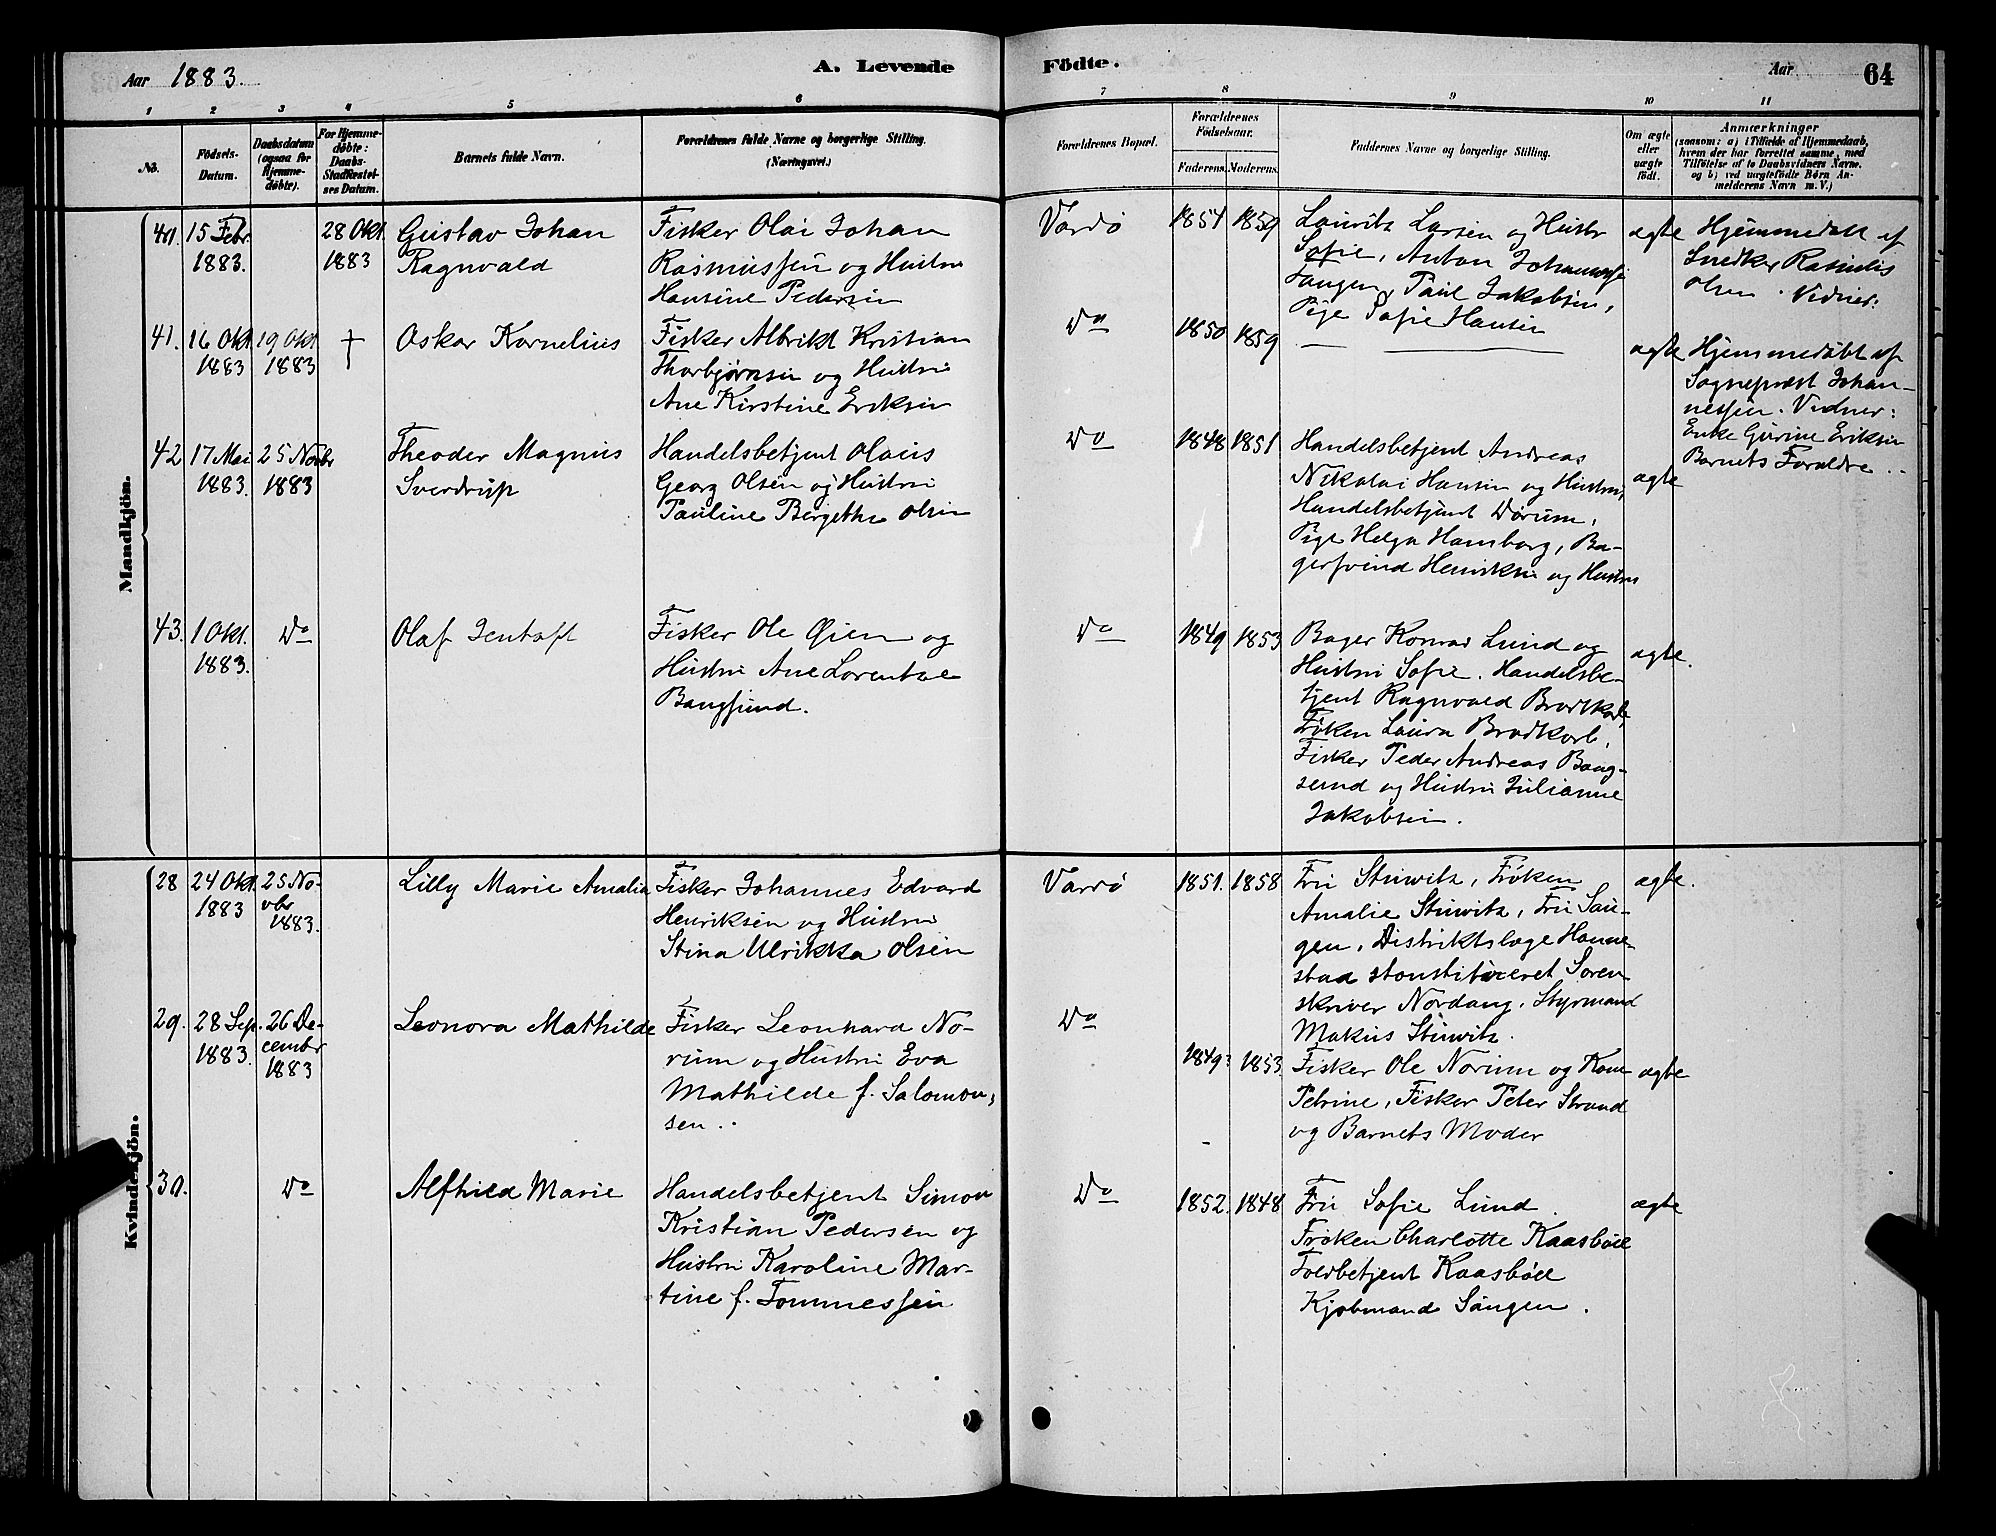 Aar 1883.
A. Levende Födte.
Aar 64
1 2 3 4 5 6 7 8 9 10 11
No.
Födsels-
Datum.
Daabsdatum
(ogsaa for
Hjemme-
döbte).
For Hjemme-
döbte:
Daabs-
Stadfæstel-
ses Datum.
Barnets fulde Navn.
Forældrenes fulde Navne og borgerlige Stilling.
(Næringsvei.)
Forældrenes Bopæl.
Forældrenes
Födselsaar.
Faderens. Moderens.
Faddernes Navne og borgerlige Stilling.
Om ægte
eller
uægte
födt.
Anmærkninger
(saasom: a) i Tilfælde af Hjemmedaab,
hvem der har forrettet samme, med
Tilföielse af to Daabsvidners Navne.
og b) ved uægtefödte Börn An-
melderens Navn m. V.)
Mandkjön.
40. 15 Febr.
1883.
28 Okt.
1883
Gustav Johan
Ragnvald
Fisker Olai Johan
Rasmussen og Hustru
Hansine Pedersen
Vardø
1854 1859
Lauritz Larsen og Hustr
Sofie, Anton
Paul Jakobsen,
Pige Sofie Hansen
ægte
Hjemmedøbt af
Snedker
Olsen. Vidner:
41. 16 Okt.
1883
19 Okt
1883
†
Oskar Kornelius
Fisker Albrikt Kristian
Thorbjørnsen og Hustru
Ane Kirstine Eriksen
Do
1850 1859
— —
ægte
Hjemmedøbt af
Sognepræst Johan-
nessen. Vidner:
Enke Gurine Eriksen
Barnets Forældre..
42 17 Mai
1883.
25 Novbr
1883
Theodor Magnus
Sverdrup
Handelsbetjent Olaus
Georg Olsen og Hustru
Pauline Bergethe Olsen
Do
1848 1851
Handelsbetjent Andreas
Nikolai Hansen og Hustru,
Handelsbetjent Dørum,
Pige Helga Hamborg, Ba-
gersvend Henriksen og Hustru
ægte
43. 1 Okt.
1883.
Do
Olaf Jentoft
Fisker Ole Øien og
Hustru Ane Lorentze
Bangsund.
Do
1849 1853
Bager Konrad Lund og
Hustru Sofie. Handelsbe-
tjent Ragnvald Brodtkorb,
Frøken Laura Brodkorb,
Fisker Peder Andreas Bang-
sund og Hustru Julianne
Jakobsen.
ægte.
Kvindekjön.
28 24 Okt.
1883
25 No-
vbr
1883.
Lilly Marie Amalia
Fisker Johannes Edvard
Henriksen og Hustru
Stina Ulrikka Olsen
Vardø
1851. 1858
Fru Stüwitz, Frøken
Amalie Stüwitz, Fru Sau-
gen, Distriktslæge Hanne-
stad konstitueret Soren-
skriver Nordang, Styrmand
Makus Stüwitz.
ægte.
29. 28 Sep.
1883.
26 De-
cembr
1883
Leonora Mathilde
Fisker Leonhard No-
rum og Hustru Eva
Mathilde f. Salomon-
sen..
Do
1849? 1853.
Fisker Ole Norum og Kone
Petrine, Fisker Peter Strand
og Barnets Moder
ægte
30.
Do
Alfhild Marie
Handelsbetjent Simon
Kristian Pedersen og
Hustru Karoline Mar-
tine f. Tommessen
Do
1852. 1848
Fru Sofie Lund.
Frøken Charlotte Kaasbøll
Toldbetjent Kaasbøll
Kjøbmand Saugen.
ægte